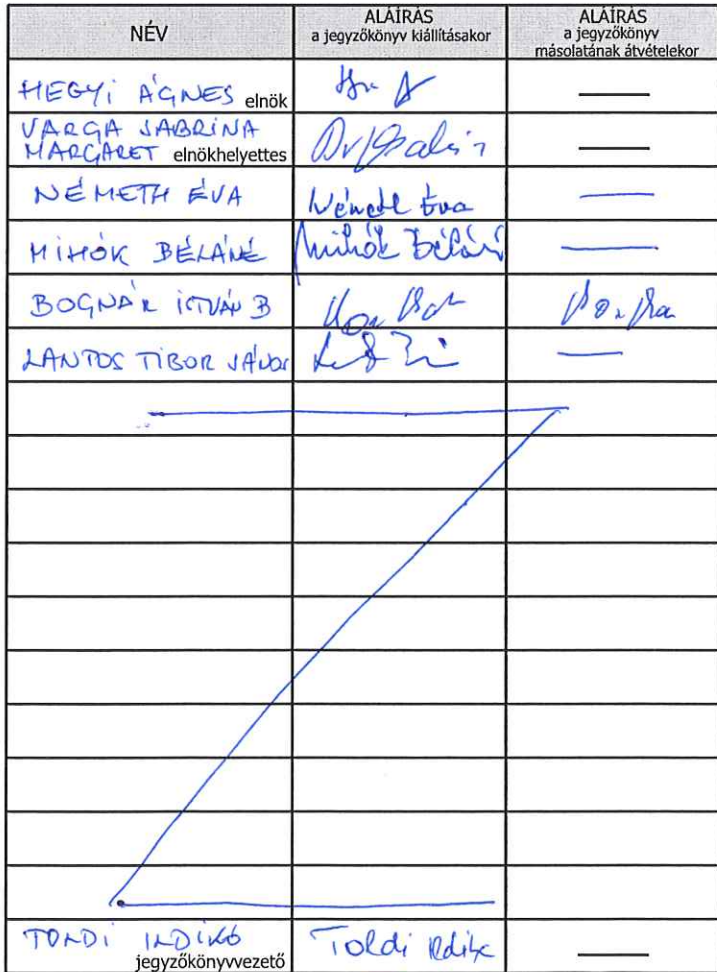 NÉV
ALÁÍRÁS
a jegyzőkönyv kiállításakor
ALÁÍRÁS
a jegyzőkönyv
másolatának átvételekor
HEGYI ÁGNES elnök
VARGA SABRINA
MARGARET elnökhelyettes
NÉMETH ÉVA
Németh Éva
MIHÓK BÉLÁNÉ
Mihók Béláné
BOGNÁR ISTVÁN B
LANTOS TIBOR JÁNOS
TOLDI ILDIKÓ
jegyzőkönyvvezető
Toldi Ildikó